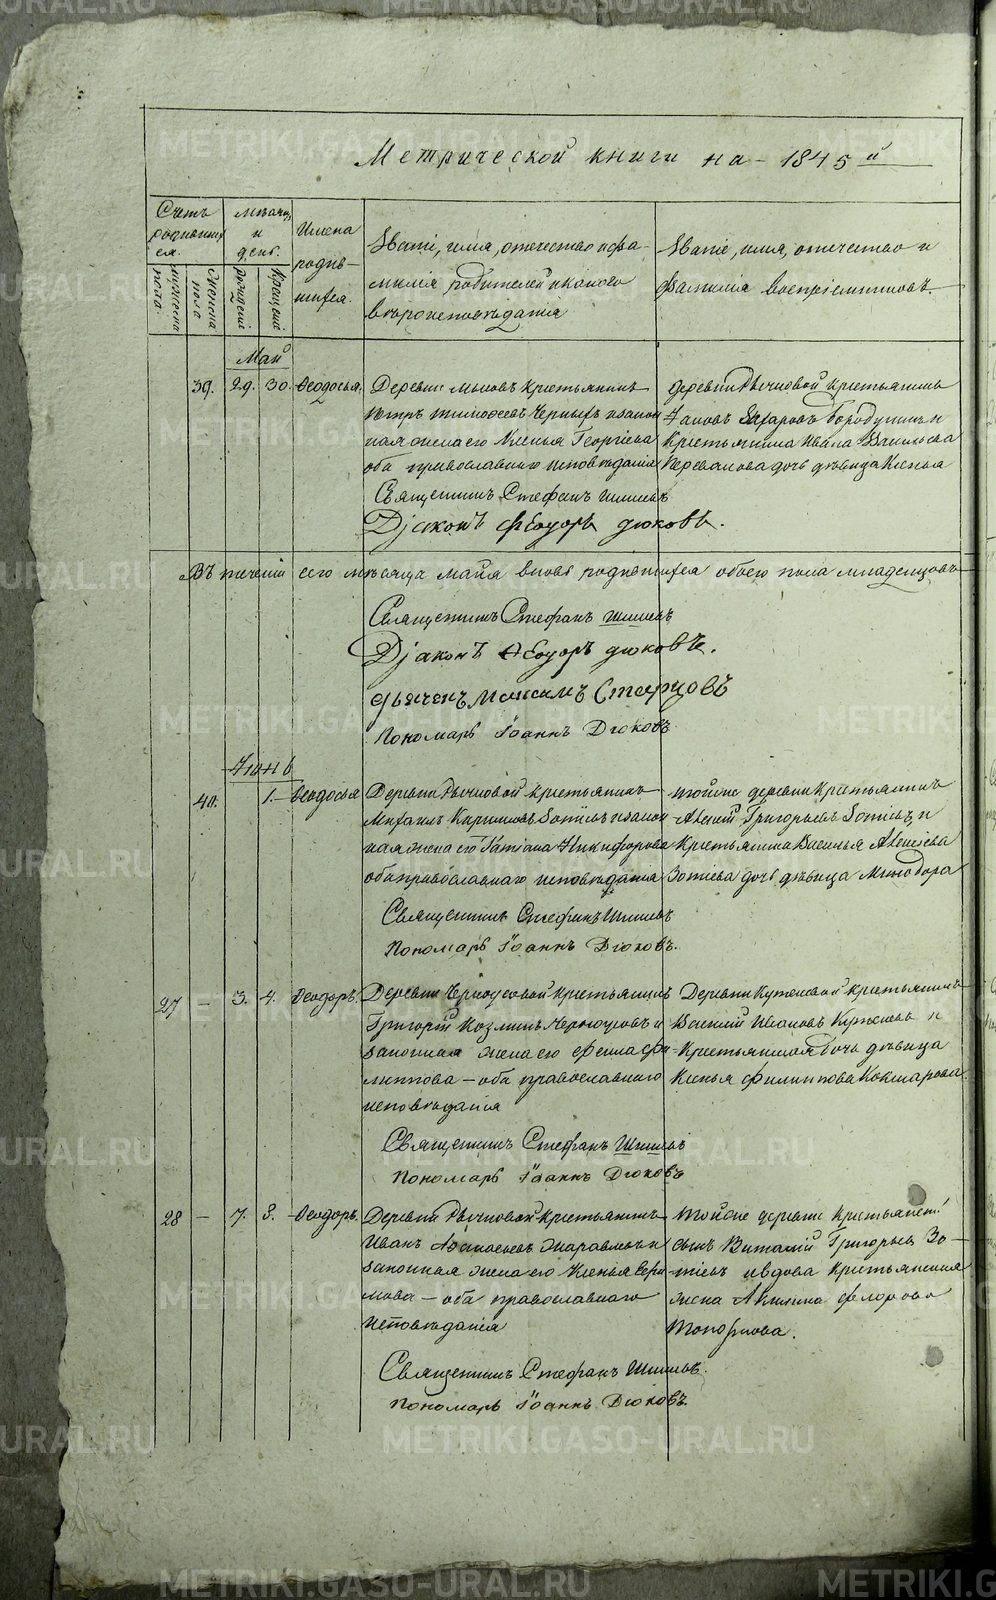 METRIKI.GASO-URAL.RU
Метрической книги на 1845й
Счетъ родившихся.
мужеска пола.
женска пола
Месяцъ и день.
рожденія
крещенія
Имена родившихся.
Званіе, имя, отечество и фамилія родителей и какого вероисповѣданія
Званіе, имя, отечество и фамилія воспріемниковъ.
Май
39. 29. 30. Феодосья.
Деревни крестьянинъ
Петръ Тимофеевъ Черныхъ и закон
ная жена его Ксенья Георгіева
оба православнаго исповѣданія
деревни крестьянинъ
Захаровъ Бородулинъ и
крестьянина Ивана Васильева
дочь дѣвица Ксенья
Священникъ Стефанъ
Діаконъ Феодоръ Дюковъ.
Въ теченіи сего мѣсяца майя вновь родившихся обоего пола младенцовъ
Священникъ Стефанъ
Діаконъ Феодоръ Дюковъ.
Дьячекъ Максимъ Старцовъ
Пономарь Іоаннъ Дюковъ
Іюнь
40. 1. Феодосья
Деревни крестьянинъ
Михаилъ Кириловъ Зотѣевъ и закон
ная жена его Татіана Никифорова
оба православнаго исповѣданія
тойже деревни крестьянинъ
Алексій Григорьевъ Зотѣевъ и
крестьянина Василья Алексіева
Зотѣева дочь дѣвица Минодора
Священникъ Стефанъ
Пономарь Іоаннъ Дюковъ.
27 – 3. 4. Феодоръ.
Деревни Черноусовой крестьянинъ
Григорій Козминъ Черноусовъ и
законная жена его Фекла Фи-
липпова – оба православнаго
исповѣданія
Деревни крестьянинъ
Василій Ивановъ и
крестьянская дочь дѣвица
Ксенья Филиппова Кокшарова.
Священникъ Стефанъ
Пономарь Іоаннъ Дюковъ
28 – 7. 8. Феодоръ.
Деревни крестьянинъ
Иванъ Афанасьевъ Журавлевъ и
законная жена его Ксенья
– оба православнаго
исповѣданія
Тойже деревни крестьянскій
сынъ Виталій Григорьевъ Зо-
тѣевъ и вдова крестьянская
жена Акилина Флорова
Топоркова.
Священникъ Стефанъ
Пономарь Іоаннъ Дюковъ.